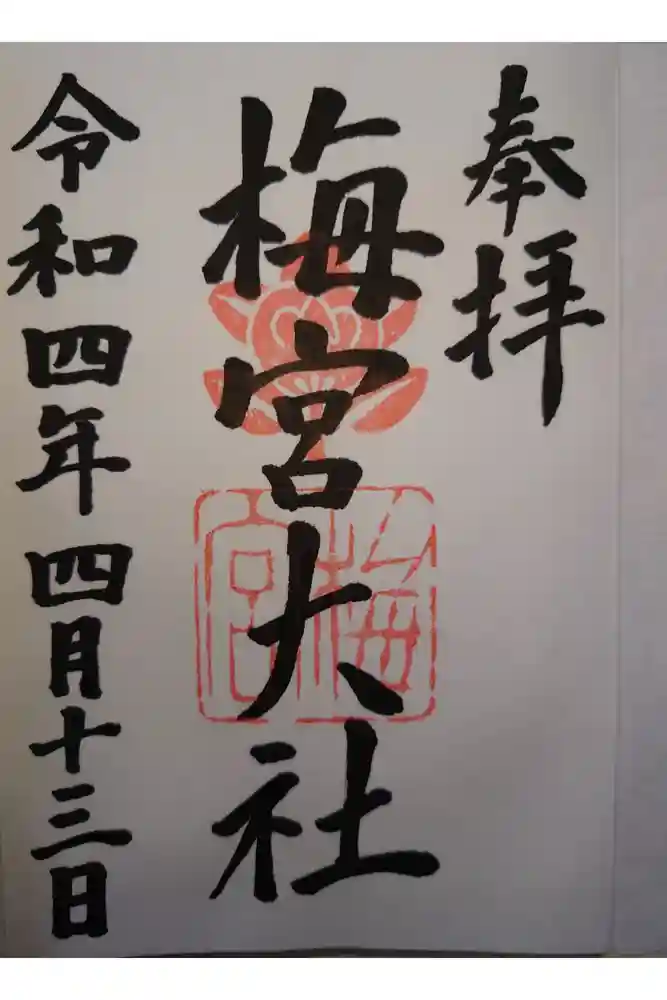 奉拝
梅宮大社
梅宮
令和四年四月十三日